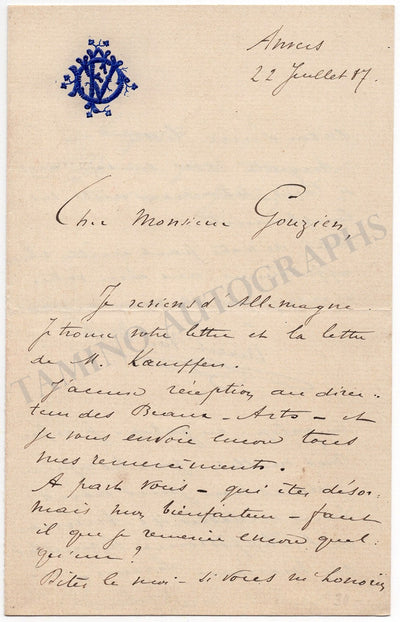 Anvers
22 Juillet 87.
Cher Monsieur Gouzien,
Je reviens d'Allemagne.
Je trouve votre lettre et la lettre
de M. Kaempfen.
J'accuse réception au direc-
teur des Beaux-Arts - et
je vous envoie encore tous
mes remerciements.
A part vous - qui êtes désor-
mais mon bienfaiteur - faut
il que je remercie encore quel-
qu'un?
Dites le moi - si vous m'honorez
TAMINO AUTOGRAPHS